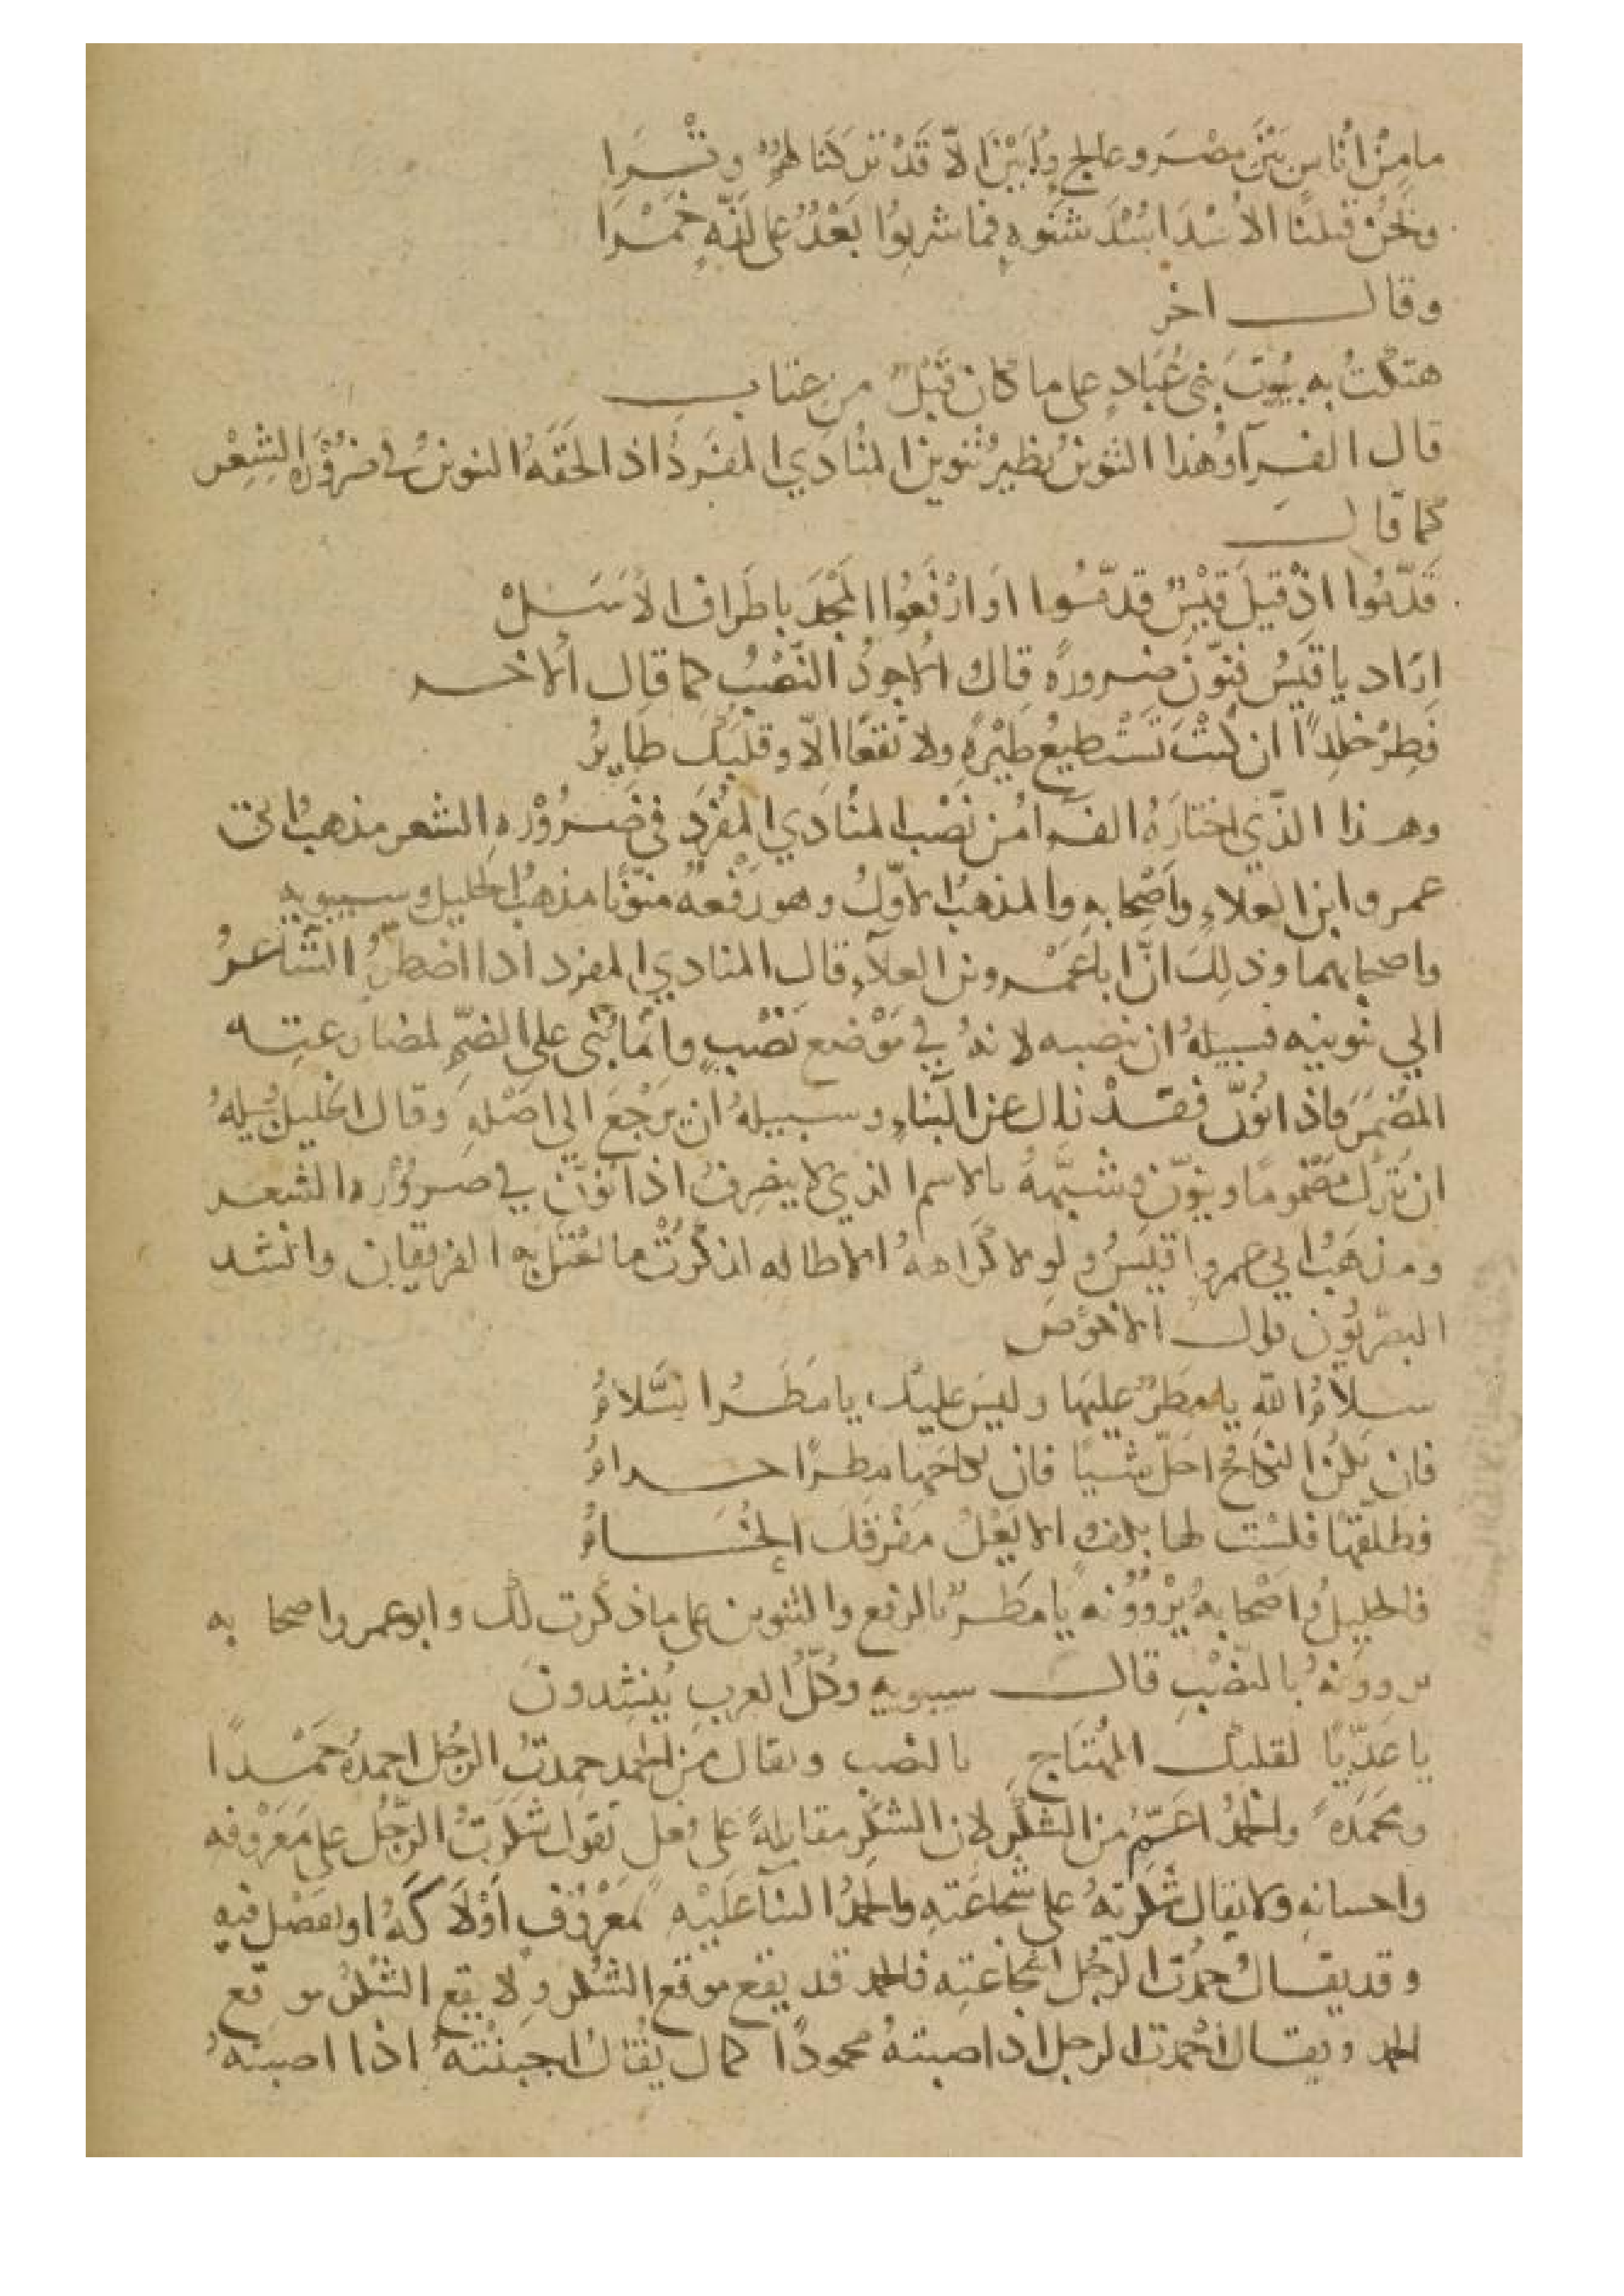 ما مِنْ أناسٍ بَيْنَ مِصْرَ وعالجٍ وأبْيَنَ الّا قَدْ تَرَكنَا لهُمْ وِتْرَا
ونَحْنُ قتلنَا الأُسْدَ اُسْدَ شَنُوهٍ فما شربُوا بَعْدٌ على لَذّهٍ خَمْرَا
وقال اخر
هتكتُ به بيُوتَ بنى عُبَادٍ على ما كان قَبْلٌ من عتاب
قال الفرآ وهذا التنوينُ نظيرُ تنوين المنادَي المفرَدُ اذا لحقَهُ التنوينُ في ضرُوْرَه الشِعْر
كما قالَ
قَدّمُوا اذْ قيلَ قيْسٌ قدّمُوا اَوَارْفَعُوا المَجْدَ باطَراف الاَسَلْ
ارَاد يا قَيسُ فنوّنَ ضرورةً قال الاجودُ النّصْبُ كما قال الاخر
فطِرْ خالِدًا ان كنْتَ تَسْتطيعُ طيْرةً ولا تقعًا الّا وقلبُكَ طايرُ
وهذا الذّي اختارَهُ الفرآ مُن نَصْب المنَادَي المُفْرَد في ضَرُوْرَهِ الشعر مذهبُ ابي
عمرو ابن العلاءِ واَصْحابهِ والمذهبُ الاوّلُ وهو رَفْعهُ منوّنًا مذهبُ الخليل وسيبويه
واصحابهما وذلِكَ انّ اباعَمْرو بن العلآءِ قال المنادي المفرد اذا اضطرّ الشاعرُ
الي تنوينه فسبيلهُ ان نصبه لانهُ في مَوْضع نَصْبٍ وانّما بُنى على الضمّ لمضارعتِه
المُضْمَرَ فاذا نُوّنَ فقدْ زال عن البنآءِ وسبيلهُ ان يَرْجعَ الى اَصْلهِ وقال الخليل سبيلهُ
ان يتركَ مَضْمومًا وينوّن فشبّههُ بالاسم الذي لا ينصرفُ اذا نوّنَ في ضرُوْره الشعر
ومذهَبُ ابي عمرو اقيسُ ولولا كرَاههُ الاطالهِ لذكرْتُ ما يعْتَلّ به الفريقان وانشد
البصْريّون قول الاحوَص
سلاَمُ اللّهِ يا مطَرٌ عليهَا وليسَ عليك يا مطَرُ السّلامُ
فان يكُنِ النكاحُ احَلّ شيًا فان نكاحَهَا مطرًا حرامُ
فطلّقْهَا فلسْتَ لها بكفوٍ والا يَعْلُ مفْرقَك الحُسَامُ
فالخليلُ واَصْحابهُ يرْوُوْنه يا مطَرٌ بالرفع والتنوين على ما ذكرت لكَ وابوعمر واصحا به
يروونَهُ بالنّصْبِ قال سيبويهِ وكلُّ العربِ يُنشِدونَ
يا عَدّيًا لقلبِكَ المُهْتَاجِ بالنصب ويقال مِن الحَمْد حمِدْتُ الرجُل احمدُهُ حَمْدًا
ومَحْمَدَةً والحَمْدُ اعَمّ من الشكْر لان الشكْر مقابلةً على فعلٍ تقول شكرْتُ الرّجُل على مَعَرُوْفه
واحسانهِ ولا يقال شكرتهُ على شجاعَتهِ والحمدُ الثنآ عَلَيْهِ بمَعَرُوْف اَوْلاَكَهُ او بفضْل فيه
وقد يقالُ حمِدْتُ الرجُل لشجاعتِه فالحمد قد يقع مَوْقع الشكْر ولا يقع الشكْر موقع
الحمد ويقال احْمَدْتُ الرجل اذا صبتهُ محمودًا كمال يُقال اجبنْتهُ اذا اصبتهُ